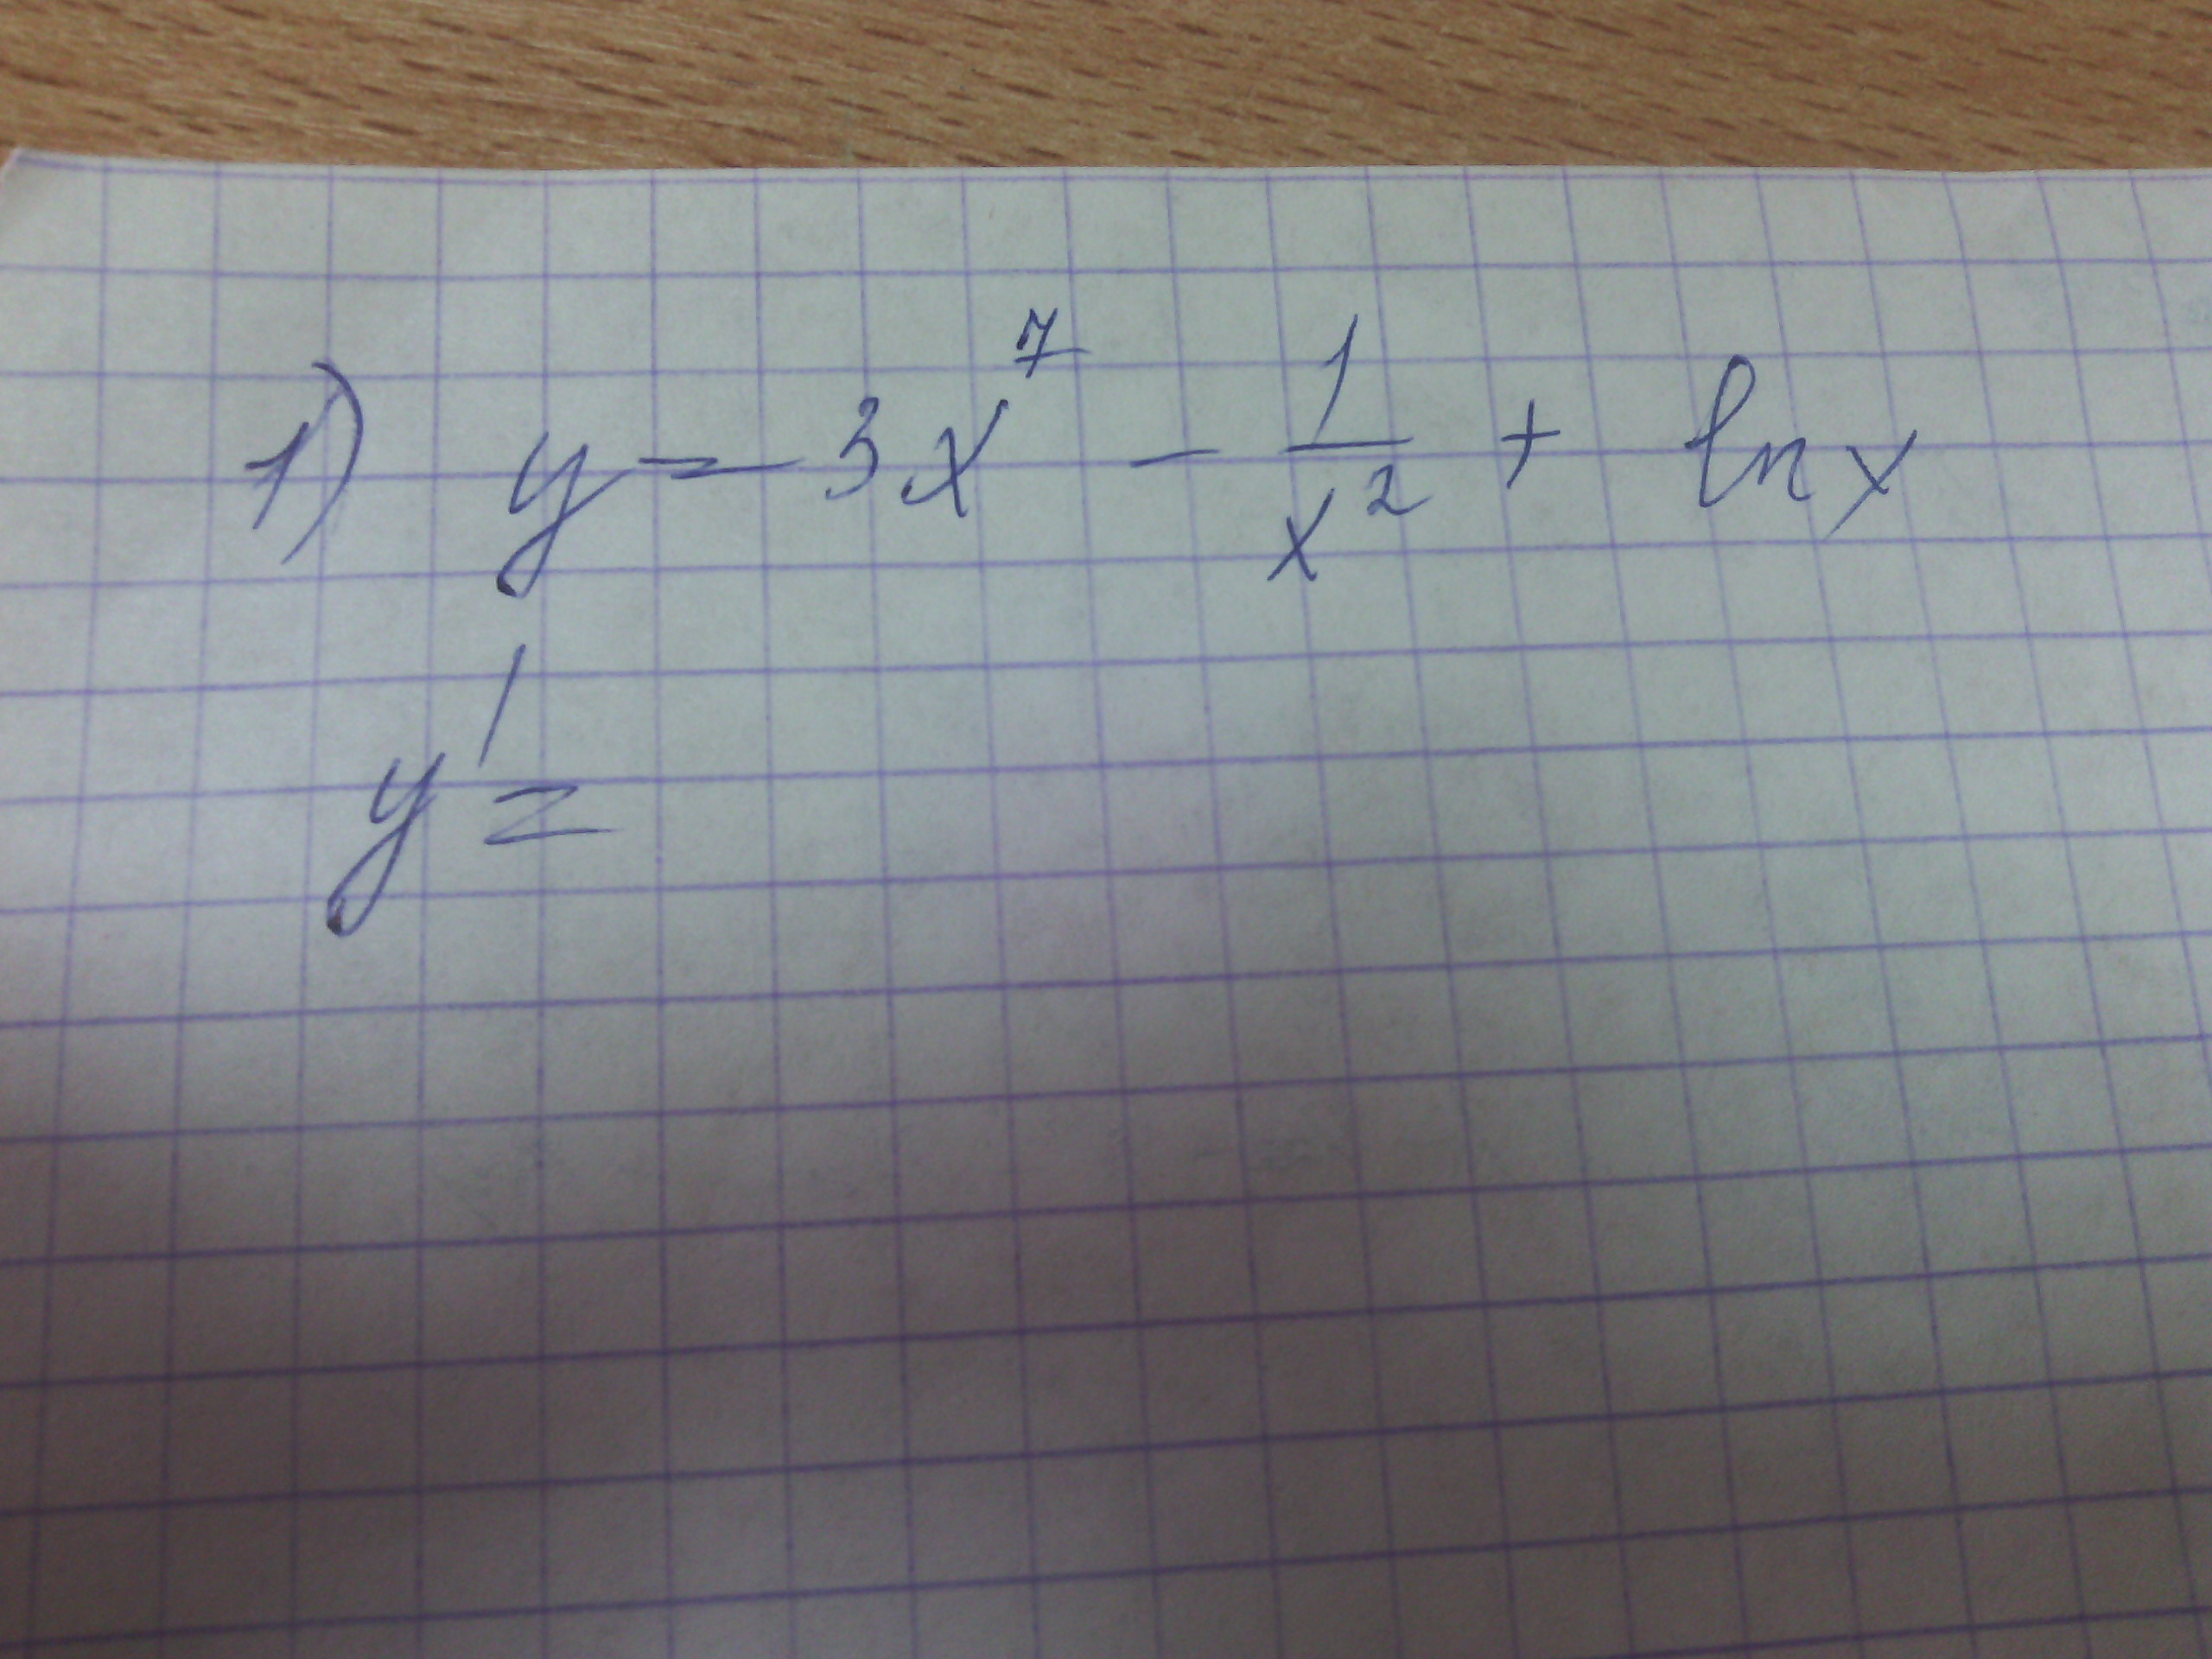 1) y = 3x⁷ - 1/x² + ln x
y' =